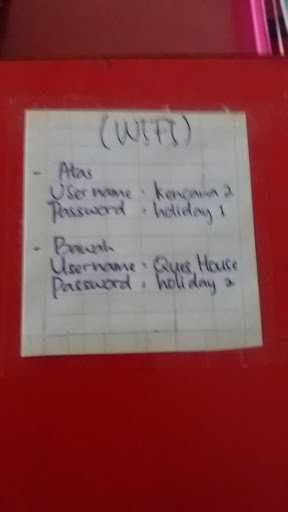 (WIFI)
- Atas
Username : Kencana 2
Password : holiday 1
- Bawah
Username : Ques House
Password : holiday 2